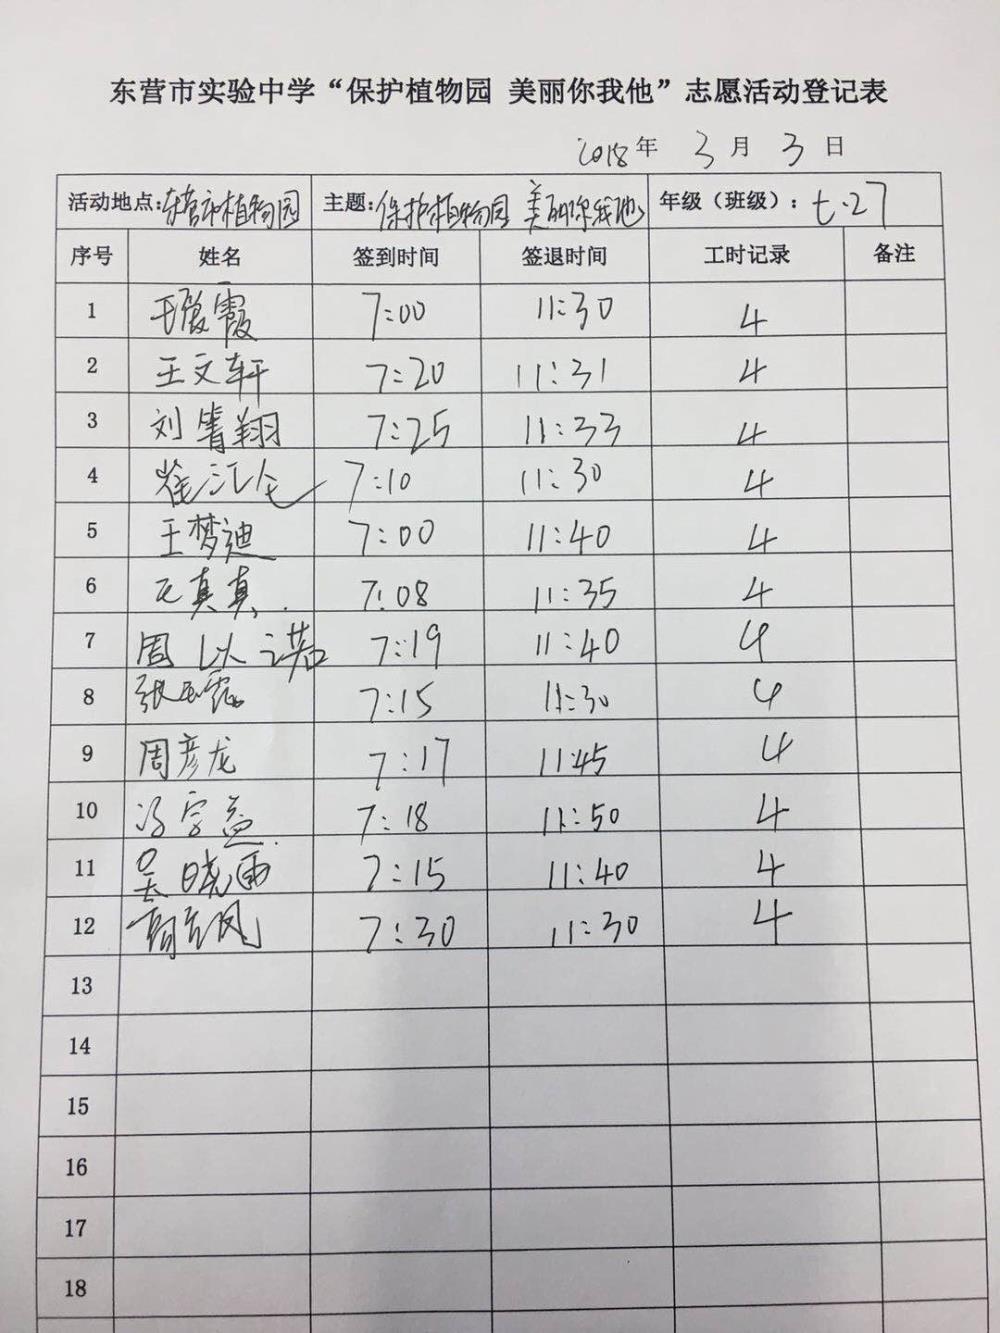 东营市实验中学“保护植物园 美丽你我他”志愿活动登记表
2018年 3月 3日
活动地点:东营市植物园 主题:保护植物园 美丽你我他 年级（班级）: 七.27
序号 姓名 签到时间 签退时间 工时记录 备注
1 霞 7:00 11:30 4
2 王文轩 7:20 11:31 4
3 刘箐翔 7:25 11:33 4
4 7:10 11:30 4
5 王梦迪 7:00 11:40 4
6 真真 7:08 11:35 4
7 周以诺 7:19 11:40 4
8 张玉霞 7:15 11:30 4
9 周彦龙 7:17 11:45 4
10 冯字益 7:18 11:50 4
11 吴晓雨 7:15 11:40 4
12 7:30 11:30 4
13
14
15
16
17
18